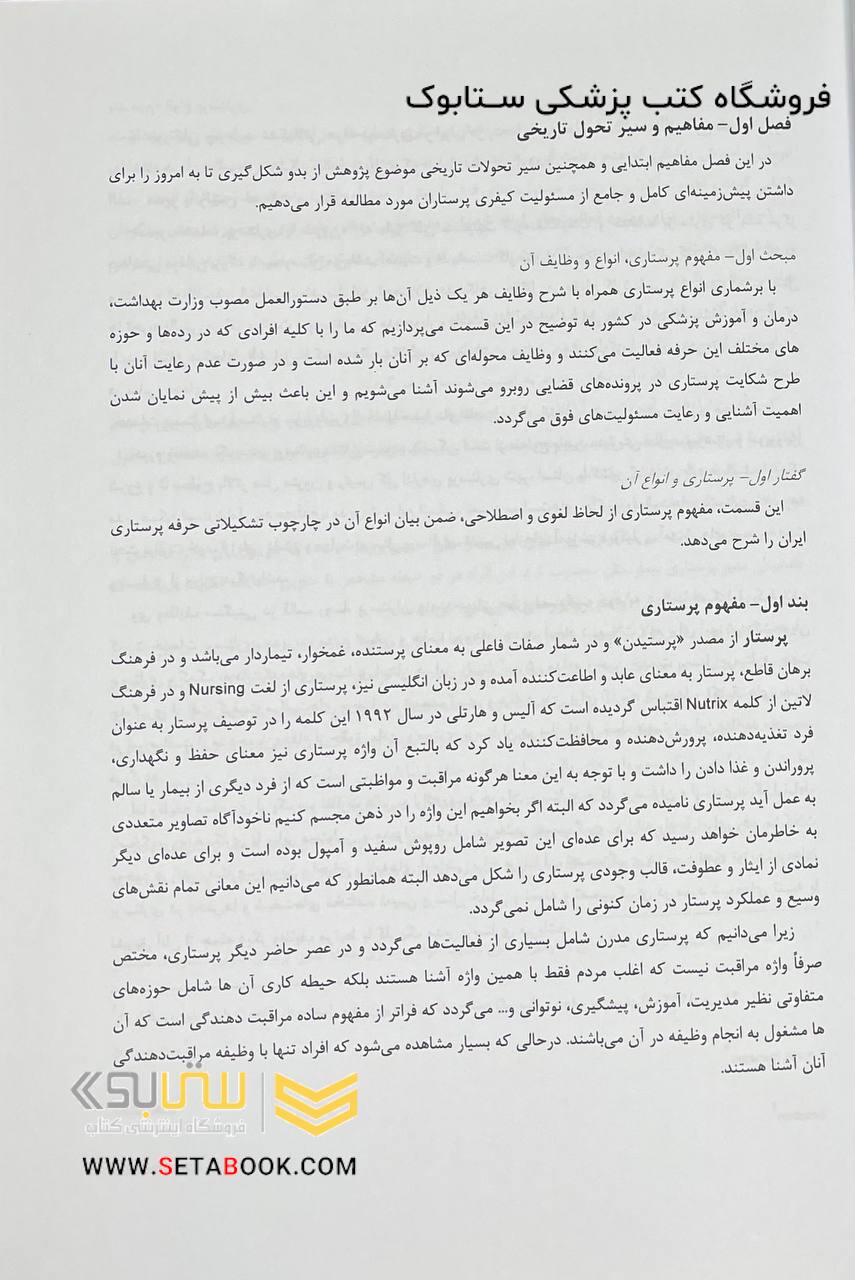 فروشگاه کتب پزشکی ستابوک
فصل اول- مفاهیم و سیر تحول تاریخی
در این فصل مفاهیم ابتدایی و همچنین سیر تحولات تاریخی موضوع پژوهش از بدو شکل‌گیری تا به امروز را برای
داشتن پیش‌زمینه‌ای کامل و جامع از مسئولیت کیفری پرستاران مورد مطالعه قرار می‌دهیم.
مبحث اول- مفهوم پرستاری، انواع و وظایف آن
با برشماری انواع پرستاری همراه با شرح وظایف هر یک ذیل آن‌ها بر طبق دستورالعمل مصوب وزارت بهداشت،
درمان و آموزش پزشکی در کشور به توضیح در این قسمت می‌پردازیم که ما را با کلیه افرادی که در رده‌ها و حوزه
های مختلف این حرفه فعالیت می‌کنند و وظایف محوله‌ای که بر آنان بار شده است و در صورت عدم رعایت آنان با
طرح شکایت پرستاری در پرونده‌های قضایی روبرو می‌شوند آشنا می‌شویم و این باعث بیش از پیش نمایان شدن
اهمیت آشنایی و رعایت مسئولیت‌های فوق می‌گردد.
گفتار اول- پرستاری و انواع آن
این قسمت، مفهوم پرستاری از لحاظ لغوی و اصطلاحی، ضمن بیان انواع آن در چارچوب تشکیلاتی حرفه پرستاری
ایران را شرح می‌دهد.
بند اول- مفهوم پرستاری
پرستار از مصدر «پرستیدن» و در شمار صفات فاعلی به معنای پرستنده، غمخوار، تیماردار می‌باشد و در فرهنگ
برهان قاطع، پرستار به معنای عابد و اطاعت‌کننده آمده و در زبان انگلیسی نیز، پرستاری از لغت Nursing و در فرهنگ
لاتین از کلمه Nutrix اقتباس گردیده است که آلیس و هارتلی در سال ۱۹۹۲ این کلمه را در توصیف پرستار به عنوان
فرد تغذیه‌دهنده، پرورش‌دهنده و محافظت‌کننده یاد کرد که بالتبع آن واژه پرستاری نیز معنای حفظ و نگهداری،
پروراندن و غذا دادن را داشت و با توجه به این معنا هرگونه مراقبت و مواظبتی است که از فرد دیگری از بیمار یا سالم
به عمل آید پرستاری نامیده می‌گردد که البته اگر بخواهیم این واژه را در ذهن مجسم کنیم ناخودآگاه تصاویر متعددی
به خاطرمان خواهد رسید که برای عده‌ای این تصویر شامل روپوش سفید و آمپول بوده است و برای عده‌ای دیگر
نمادی از ایثار و عطوفت، قالب وجودی پرستاری را شکل می‌دهد البته همانطور که می‌دانیم این معانی تمام نقش‌های
وسیع و عملکرد پرستار در زمان کنونی را شامل نمی‌گردد.
زیرا می‌دانیم که پرستاری مدرن شامل بسیاری از فعالیت‌ها می‌گردد و در عصر حاضر دیگر پرستاری، مختص
صرفاً واژه مراقبت نیست که اغلب مردم فقط با همین واژه آشنا هستند بلکه حیطه کاری آن ها شامل حوزه‌های
متفاوتی نظیر مدیریت، آموزش، پیشگیری، نوتوانی و... می‌گردد که فراتر از مفهوم ساده مراقبت دهندگی است که آن
ها مشغول به انجام وظیفه در آن می‌باشند. درحالی که بسیار مشاهده می‌شود که افراد تنها با وظیفه مراقبت‌دهندگی
آنان آشنا هستند.
ستابوک
فروشگاه اینترنتی کتاب
WWW.SETABOOK.COM